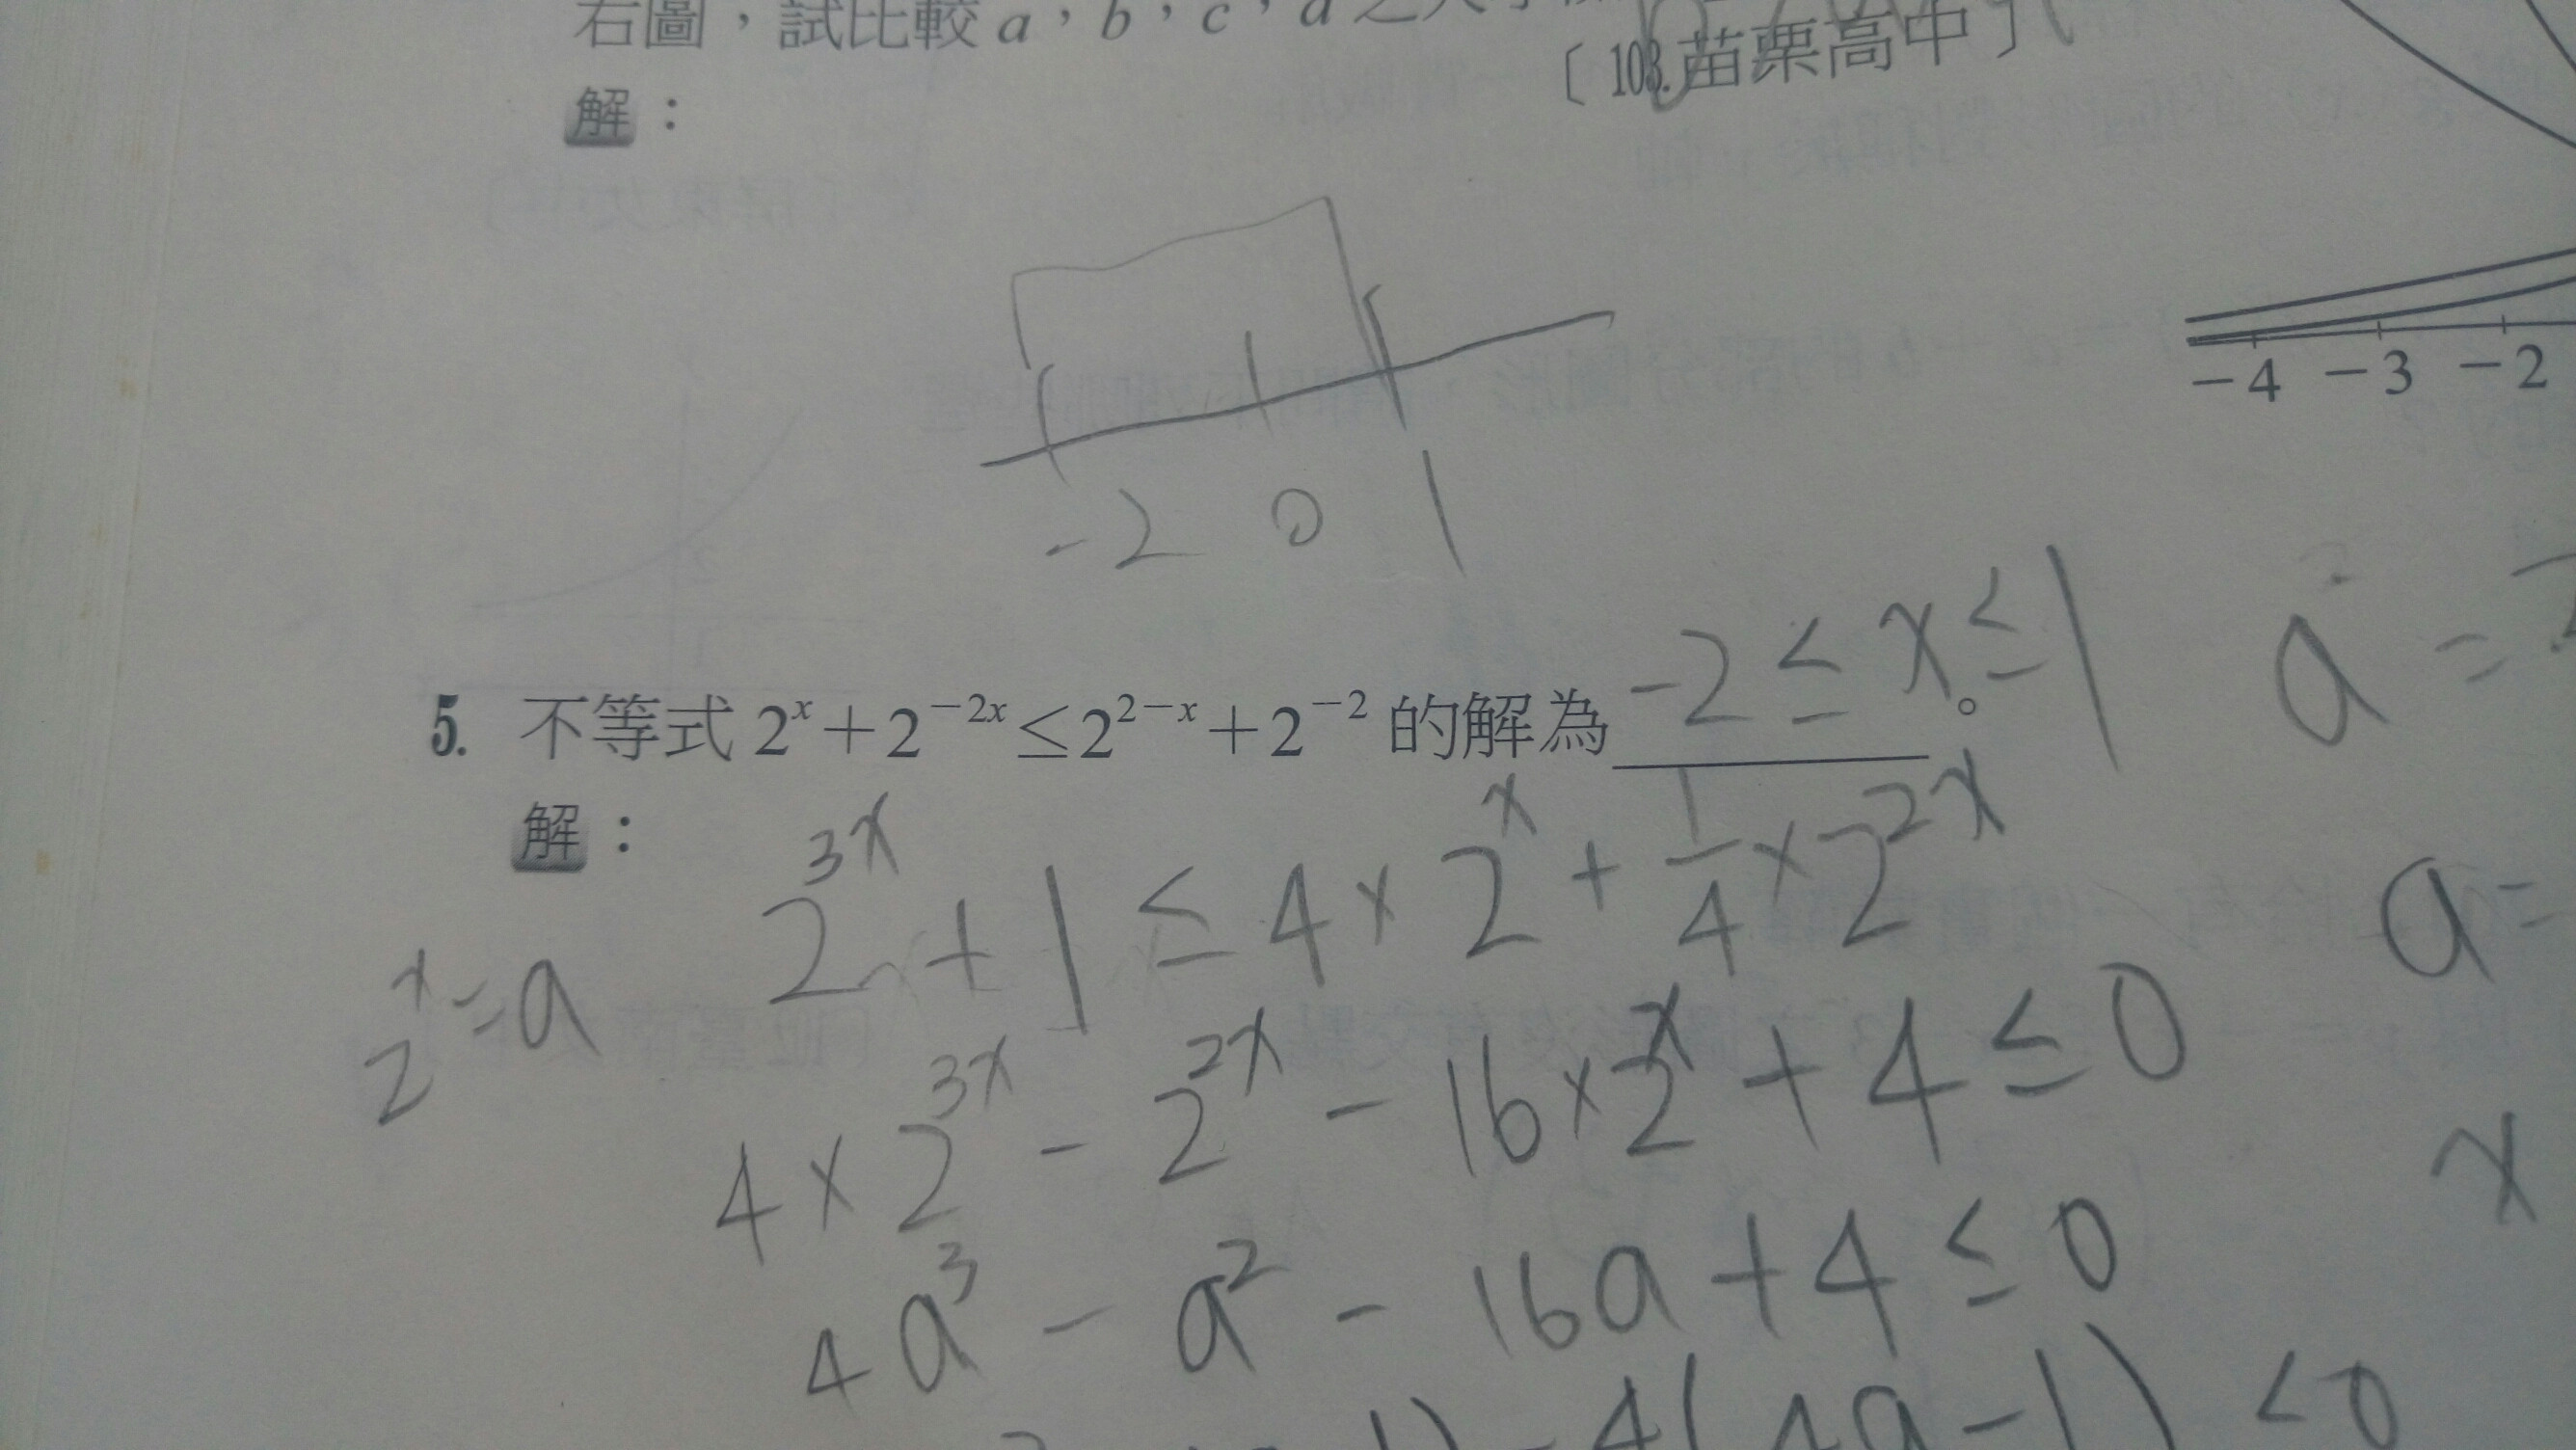 右圖，試比較 a，b，c，d 之大小
〔103.苗栗高中〕
解：
-4 -3 -2
-2 0 1
5. 不等式 2^x + 2^{-2x} ≤ 2^{2-x} + 2^{-2} 的解為 -2 ≤ x ≤ 1 。
a =
解：
2^{3x} + 1 ≤ 4 × 2^x + 1/4 × 2^{2x}
a =
2^x = a
4 × 2^{3x} - 2^{2x} - 16 × 2^x + 4 ≤ 0
x
4a^3 - a^2 - 16a + 4 ≤ 0
1) - 4(4a - 1) ≤ 0